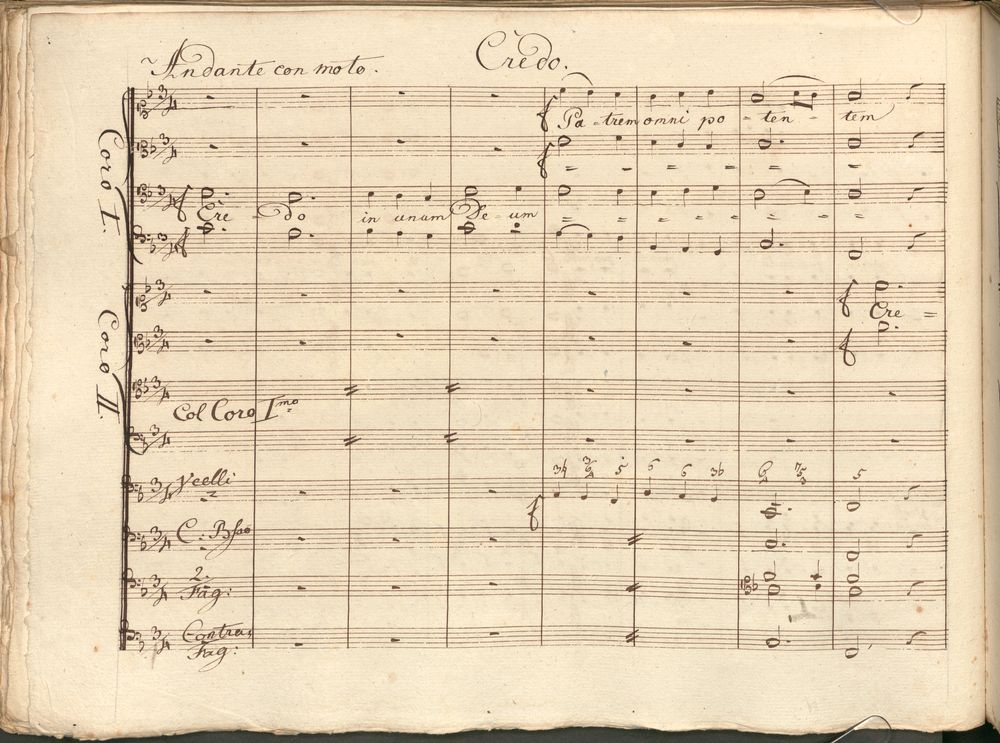 Andante con moto.
Credo.
Coro I.
Pa - trem omni po - ten - tem
Cre - do in unum De - um
Coro II.
Cre =
Col Coro Imo
Vcelli
C: Bsso
2.
Fag:
Contra
Fag: